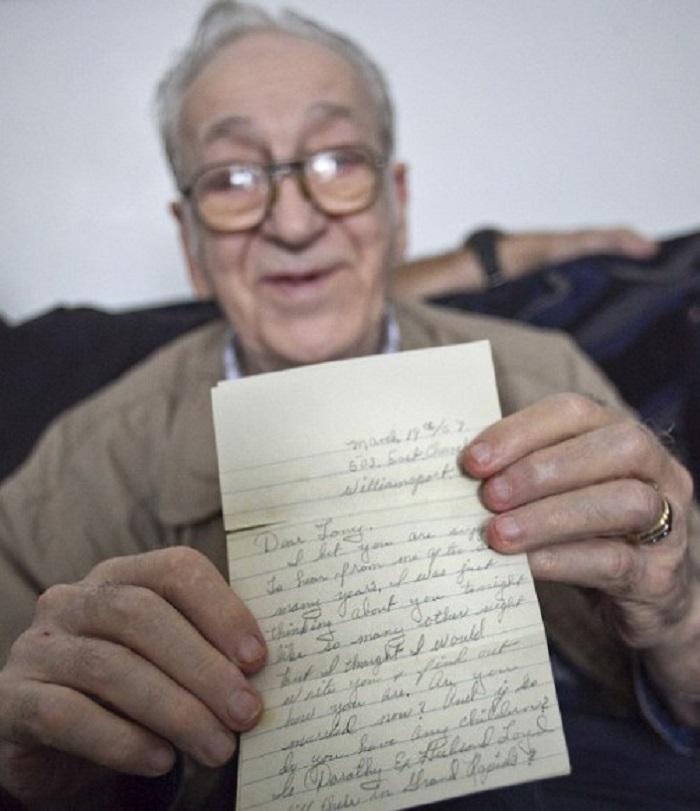 March 19th/57.
502 East Church
Williamsport
Dear Tony,
I bet you are surp
to hear from me after so
many years. I was just
thinking about you tonight
like so many other night
but I thought I would
write you & find out
how you are. Are you
married now? And if so
do you have any children?
Is Dorothy Ex Husband
still there in Grand Rapids?